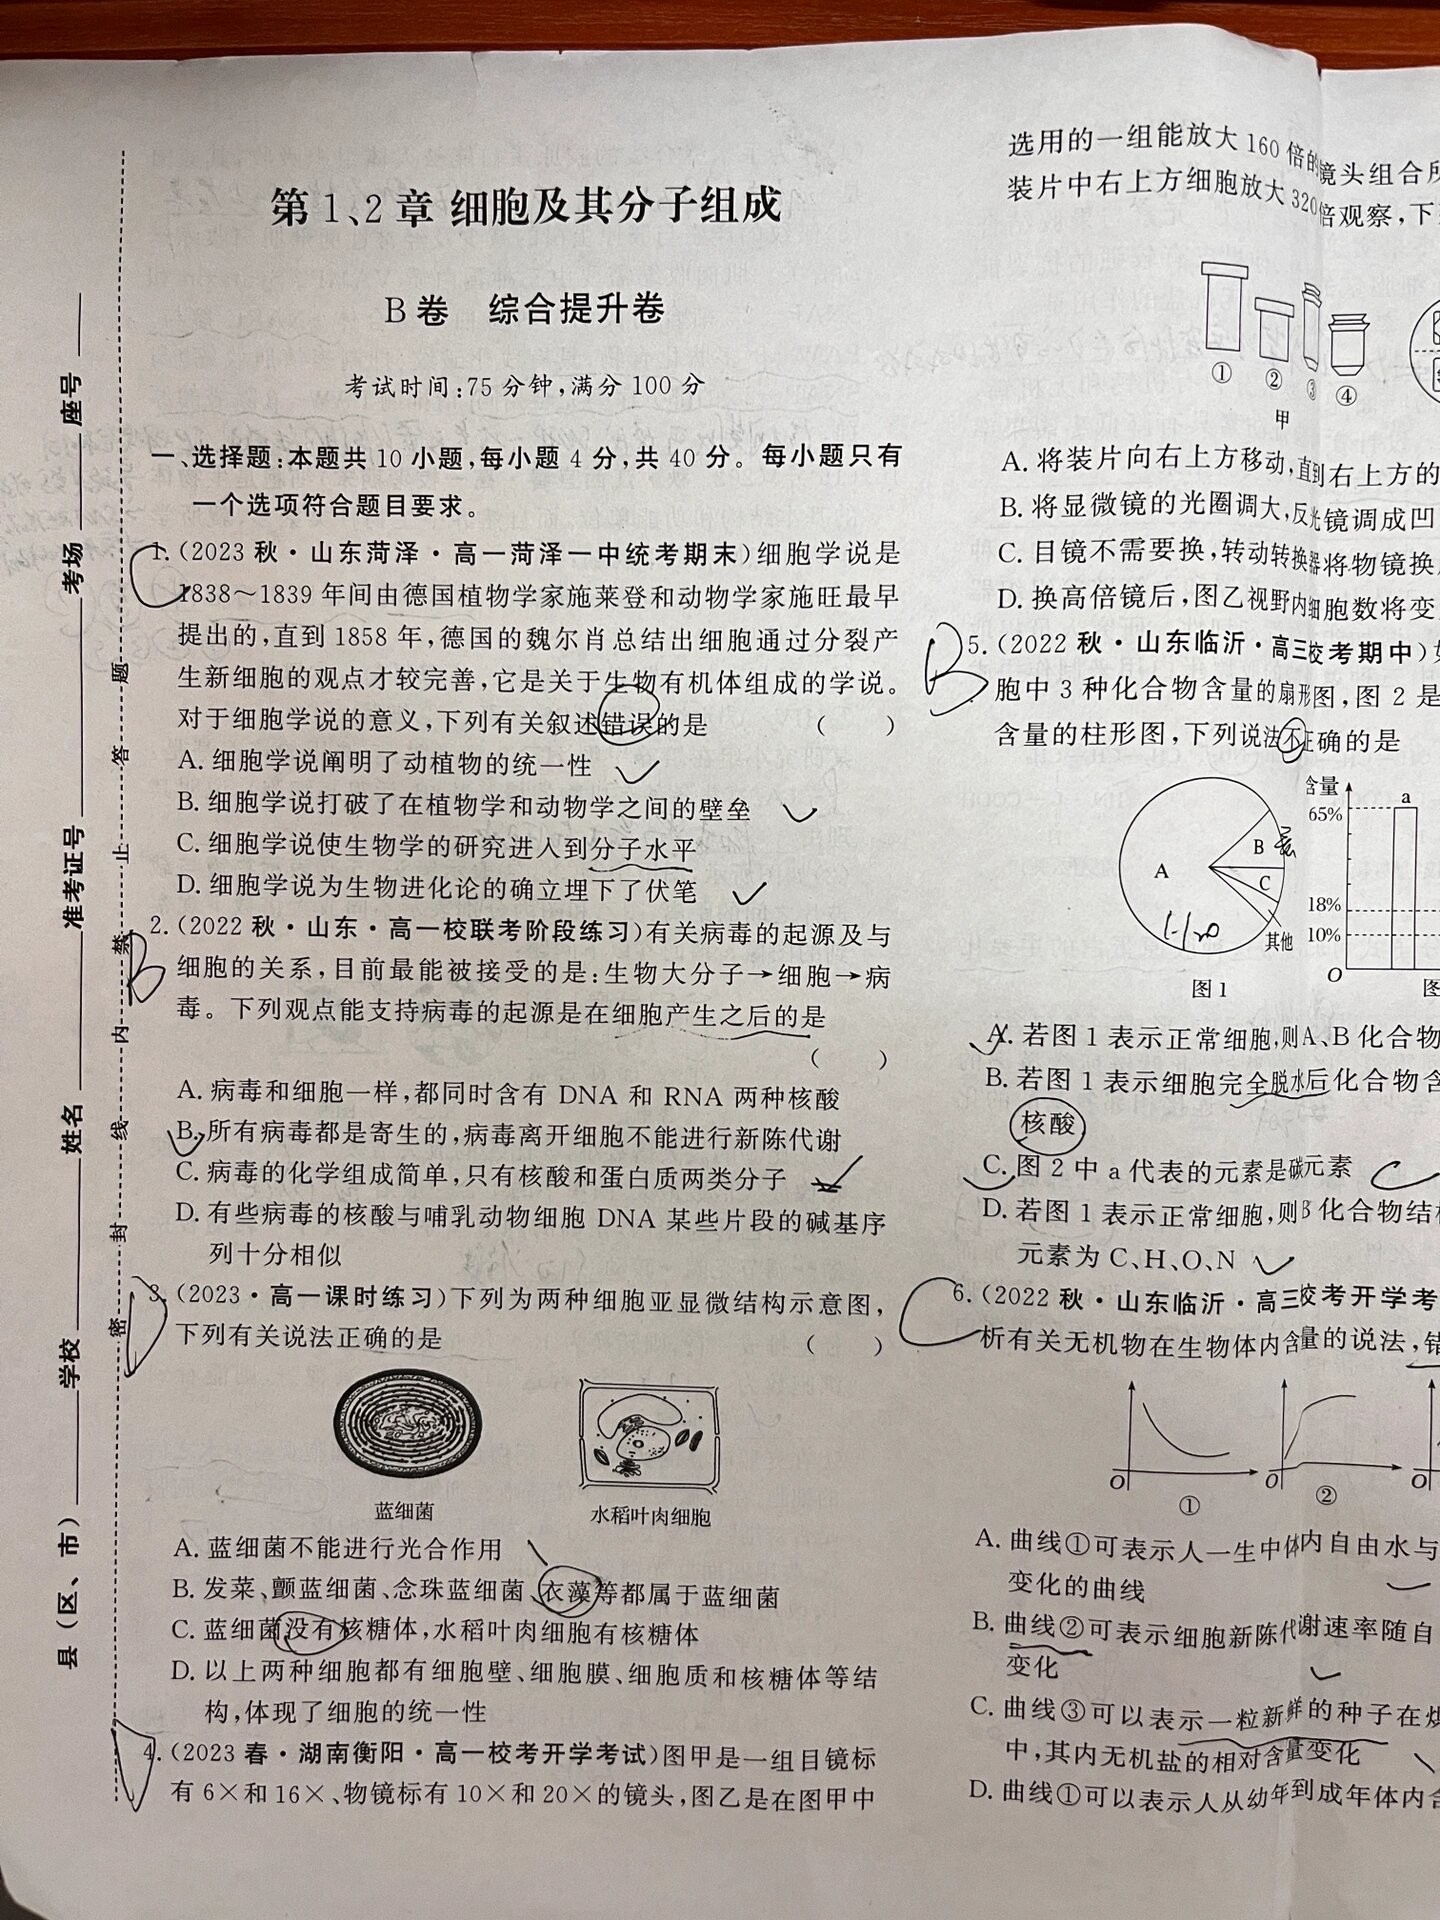 第1、2章 细胞及其分子组成
B卷 综合提升卷
考试时间:75分钟,满分100分
一、选择题:本题共10小题,每小题4分,共40分。每小题只有
一个选项符合题目要求。
C
1.(2023秋·山东菏泽·高一菏泽一中统考期末)细胞学说是
1838～1839年间由德国植物学家施莱登和动物学家施旺最早
提出的,直到1858年,德国的魏尔肖总结出细胞通过分裂产
生新细胞的观点才较完善,它是关于生物有机体组成的学说。
对于细胞学说的意义,下列有关叙述错误的是 ( )
A.细胞学说阐明了动植物的统一性
B.细胞学说打破了在植物学和动物学之间的壁垒
C.细胞学说使生物学的研究进入到分子水平
D.细胞学说为生物进化论的确立埋下了伏笔
B
2.(2022秋·山东·高一校联考阶段练习)有关病毒的起源及与
细胞的关系,目前最能被接受的是:生物大分子→细胞→病
毒。下列观点能支持病毒的起源是在细胞产生之后的是
( )
A.病毒和细胞一样,都同时含有DNA和RNA两种核酸
B.所有病毒都是寄生的,病毒离开细胞不能进行新陈代谢
C.病毒的化学组成简单,只有核酸和蛋白质两类分子
D.有些病毒的核酸与哺乳动物细胞DNA某些片段的碱基序
列十分相似
D
3.(2023·高一课时练习)下列为两种细胞亚显微结构示意图,
下列有关说法正确的是 ( )
蓝细菌
水稻叶肉细胞
A.蓝细菌不能进行光合作用
B.发菜、颤蓝细菌、念珠蓝细菌、衣藻等都属于蓝细菌
C.蓝细菌没有核糖体,水稻叶肉细胞有核糖体
D.以上两种细胞都有细胞壁、细胞膜、细胞质和核糖体等结
构,体现了细胞的统一性
D
4.(2023春·湖南衡阳·高一校考开学考试)图甲是一组目镜标
有6×和16×、物镜标有10×和20×的镜头,图乙是在图甲中
选用的一组能放大160倍的镜头组合所
装片中右上方细胞放大320倍观察,下
① ② ③ ④
甲
A.将装片向右上方移动,直到右上方的
B.将显微镜的光圈调大,反光镜调成凹
C.目镜不需要换,转动转换器将物镜换
D.换高倍镜后,图乙视野内细胞数将变
B
5.(2022秋·山东临沂·高三校考期中)如
胞中3种化合物含量的扇形图,图2是
含量的柱形图,下列说法不正确的是
A
B
C
其他
图1
含量
65%
18%
10%
O
a
图
A.若图1表示正常细胞,则A、B化合物
B.若图1表示细胞完全脱水后化合物含
核酸
C.图2中a代表的元素是碳元素
D.若图1表示正常细胞,则B化合物结构
元素为C、H、O、N
C
6.(2022秋·山东临沂·高三校考开学考
析有关无机物在生物体内含量的说法,错
O ①
O ②
O
A.曲线①可表示人一生中体内自由水与
变化的曲线
B.曲线②可表示细胞新陈代谢速率随自
变化
C.曲线③可以表示一粒新鲜的种子在烘
中,其内无机盐的相对含量变化
D.曲线①可以表示人从幼年到成年体内含
县(区、市) 学校 姓名 准考证号 考场 座号
密 封 线 内 禁 止 答 题